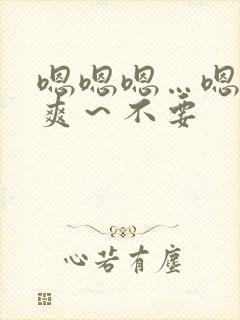 嗯嗯嗯…嗯
爽～不要
心若有塵